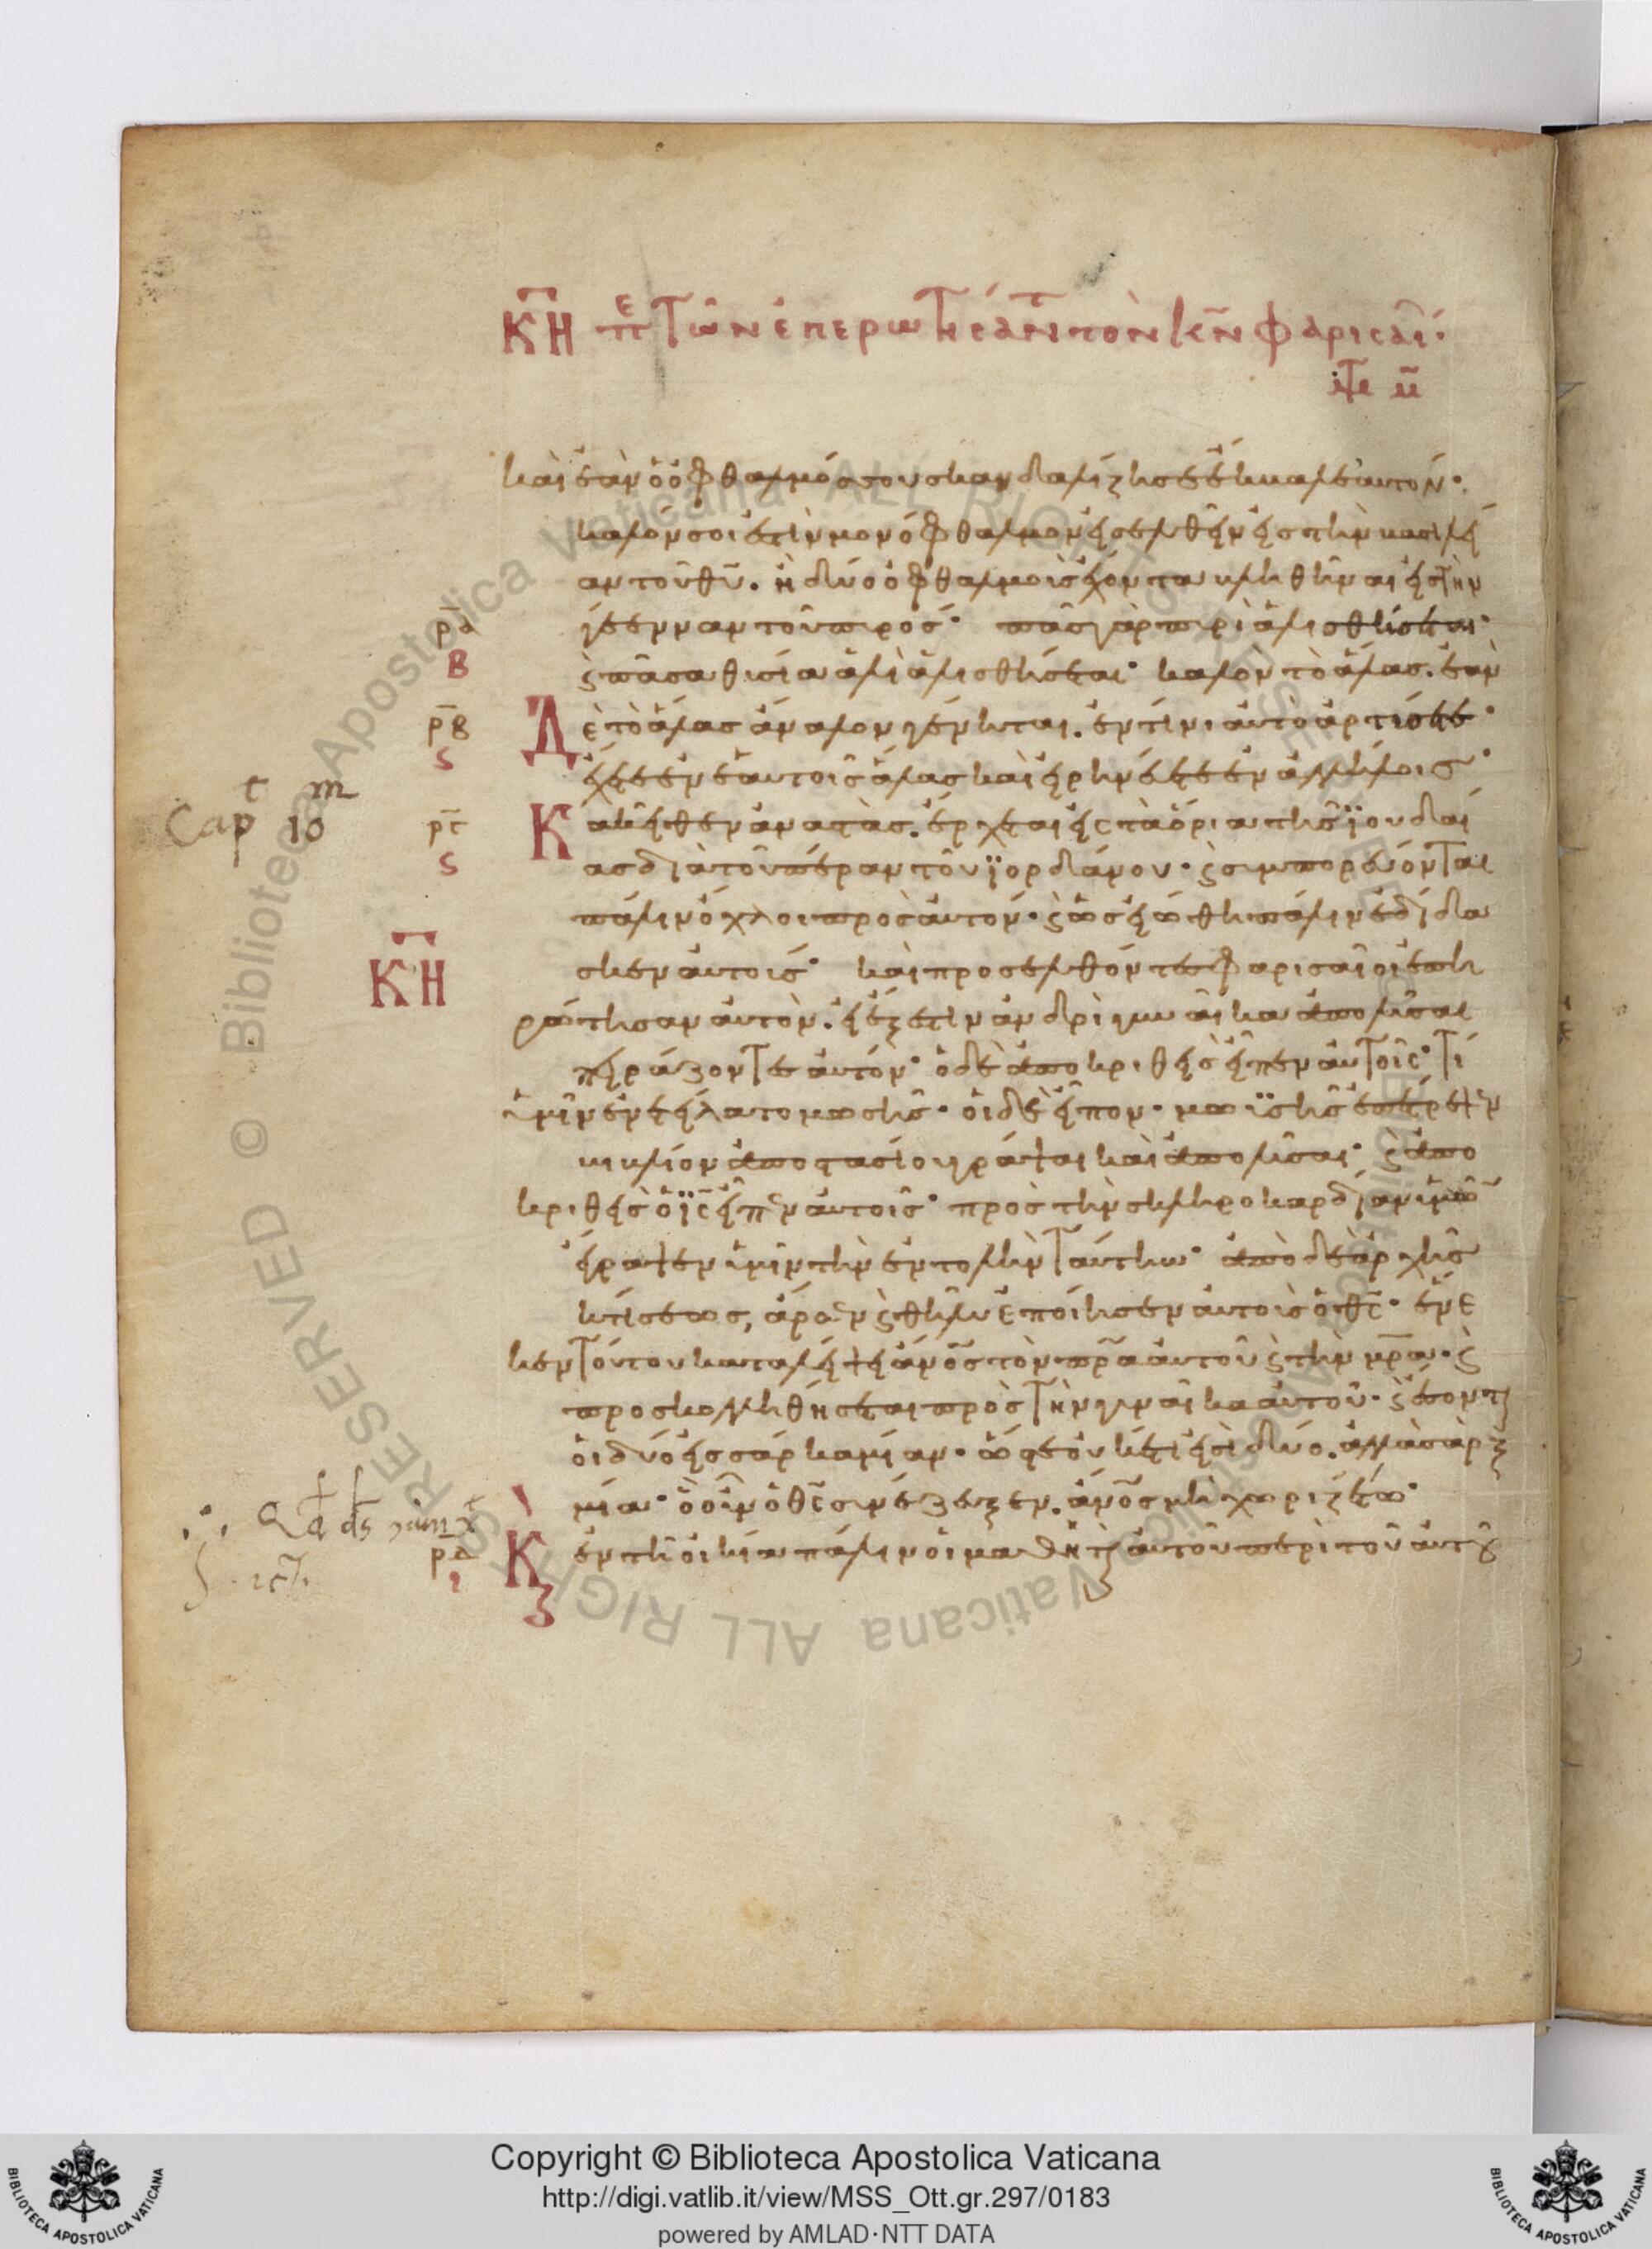 ΚΗ πε Τῶν ἐπερωτησάντ τὸν κν φαρισαί·
καὶ ἐὰν ὁ ὀφθαλμός σου σκανδαλίζη σε ἔκβαλε αὐτόν·
καλόν σοι ἐστὶν μονόφθαλμον εἰσελθεῖν εἰς τὴν βασιλεί
αν τοῦ θυ. ἢ δύο ὀφθαλμοὺς ἔχοντα βληθῆναι εἰς τὴν
ρα γέενναν τοῦ πυρός· πᾶς γὰρ πυρὶ ἁλισθήσεται·
Β ϛ πᾶσα θυσία ἁλὶ ἁλισθήσεται· καλὸν τὸ ἅλας. ἐὰν
ρβ Δὲ τὸ ἅλας ἄναλον γένηται. ἐν τίνι αὐτὸ ἀρτύσετε·
ϛ ἔχετε ἐν ἑαυτοῖς ἅλας καὶ εἰρηνεύετε ἐν ἀλλήλοις·
Cap 10
ργ Κακεῖθεν ἀναστὰς. ἔρχεται εἰς τὰ ὅρια τῆς ϊουδαί
ϛ ας διὰ τοῦ πέραν τοῦ ϊορδάνου· ϛ συμπορεύονται
πάλιν ὄχλοι πρὸς αὐτόν· ϛ ὡς εἰώθη πάλιν ἐδίδα
ΚΗ σκεν αὐτούς· καὶ προσελθόντες φαρισαῖοι ἐπη
ρώτησαν αὐτὸν. εἰ ἔξεστιν ἀνδρὶ γυναῖκα ἀπολῦσαι
πειράζοντες αὐτόν· ὁ δὲ ἀποκριθεὶς εἶπεν αὐτοῖς· τί
ὑμῖν ἐνετείλατο μωσῆς· οἱ δὲ εἶπον· μωϋσῆς ἐπέτρεψεν
βιβλίον ἀποστασίου γράψαι καὶ ἀπολῦσαι· ϛ ἀπο
κριθεὶς ὁ ις εἶπεν αὐτοῖς· πρὸς τὴν σκληροκαρδίαν ὑμῶν
ἔγραψεν ὑμῖν τὴν ἐντολὴν ταύτην· ἀπὸ δὲ ἀρχῆς
κτίσεως, ἄρσεν ϛ θῆλυ ἐποίησεν αὐτοὺς ὁ θς· ἕνε
κεν τούτου καταλείψει ἄνος τὸν πρα αὐτοῦ ϛ τὴν μρα· ϛ
προσκολληθήσεται πρὸς τὴν γυναῖκα αὐτοῦ· ϛ ἔσονται
οἱ δύο εἰς σάρκα μίαν· ὥστε οὐκέτι εἰσὶ δύο. ἀλλὰ σὰρξ
μία· ὃ οὖν ὁ θς συνέζευξεν. ἄνος μὴ χωριζέτω·
ρδ Κ ἐν τῆ οἰκία πάλιν οἱ μαθηταὶ αὐτοῦ περὶ τοῦ αὐτοῦ
Copyright © Biblioteca Apostolica Vaticana
http://digi.vatlib.it/view/MSS_Ott.gr.297/0183
powered by AMLAD·NTT DATA
BIBLIOTECA APOSTOLICA VATICANA
BIBLIOTECA APOSTOLICA VATICANA
© Biblioteca Apostolica Vaticana ALL RIGHTS RESERVED